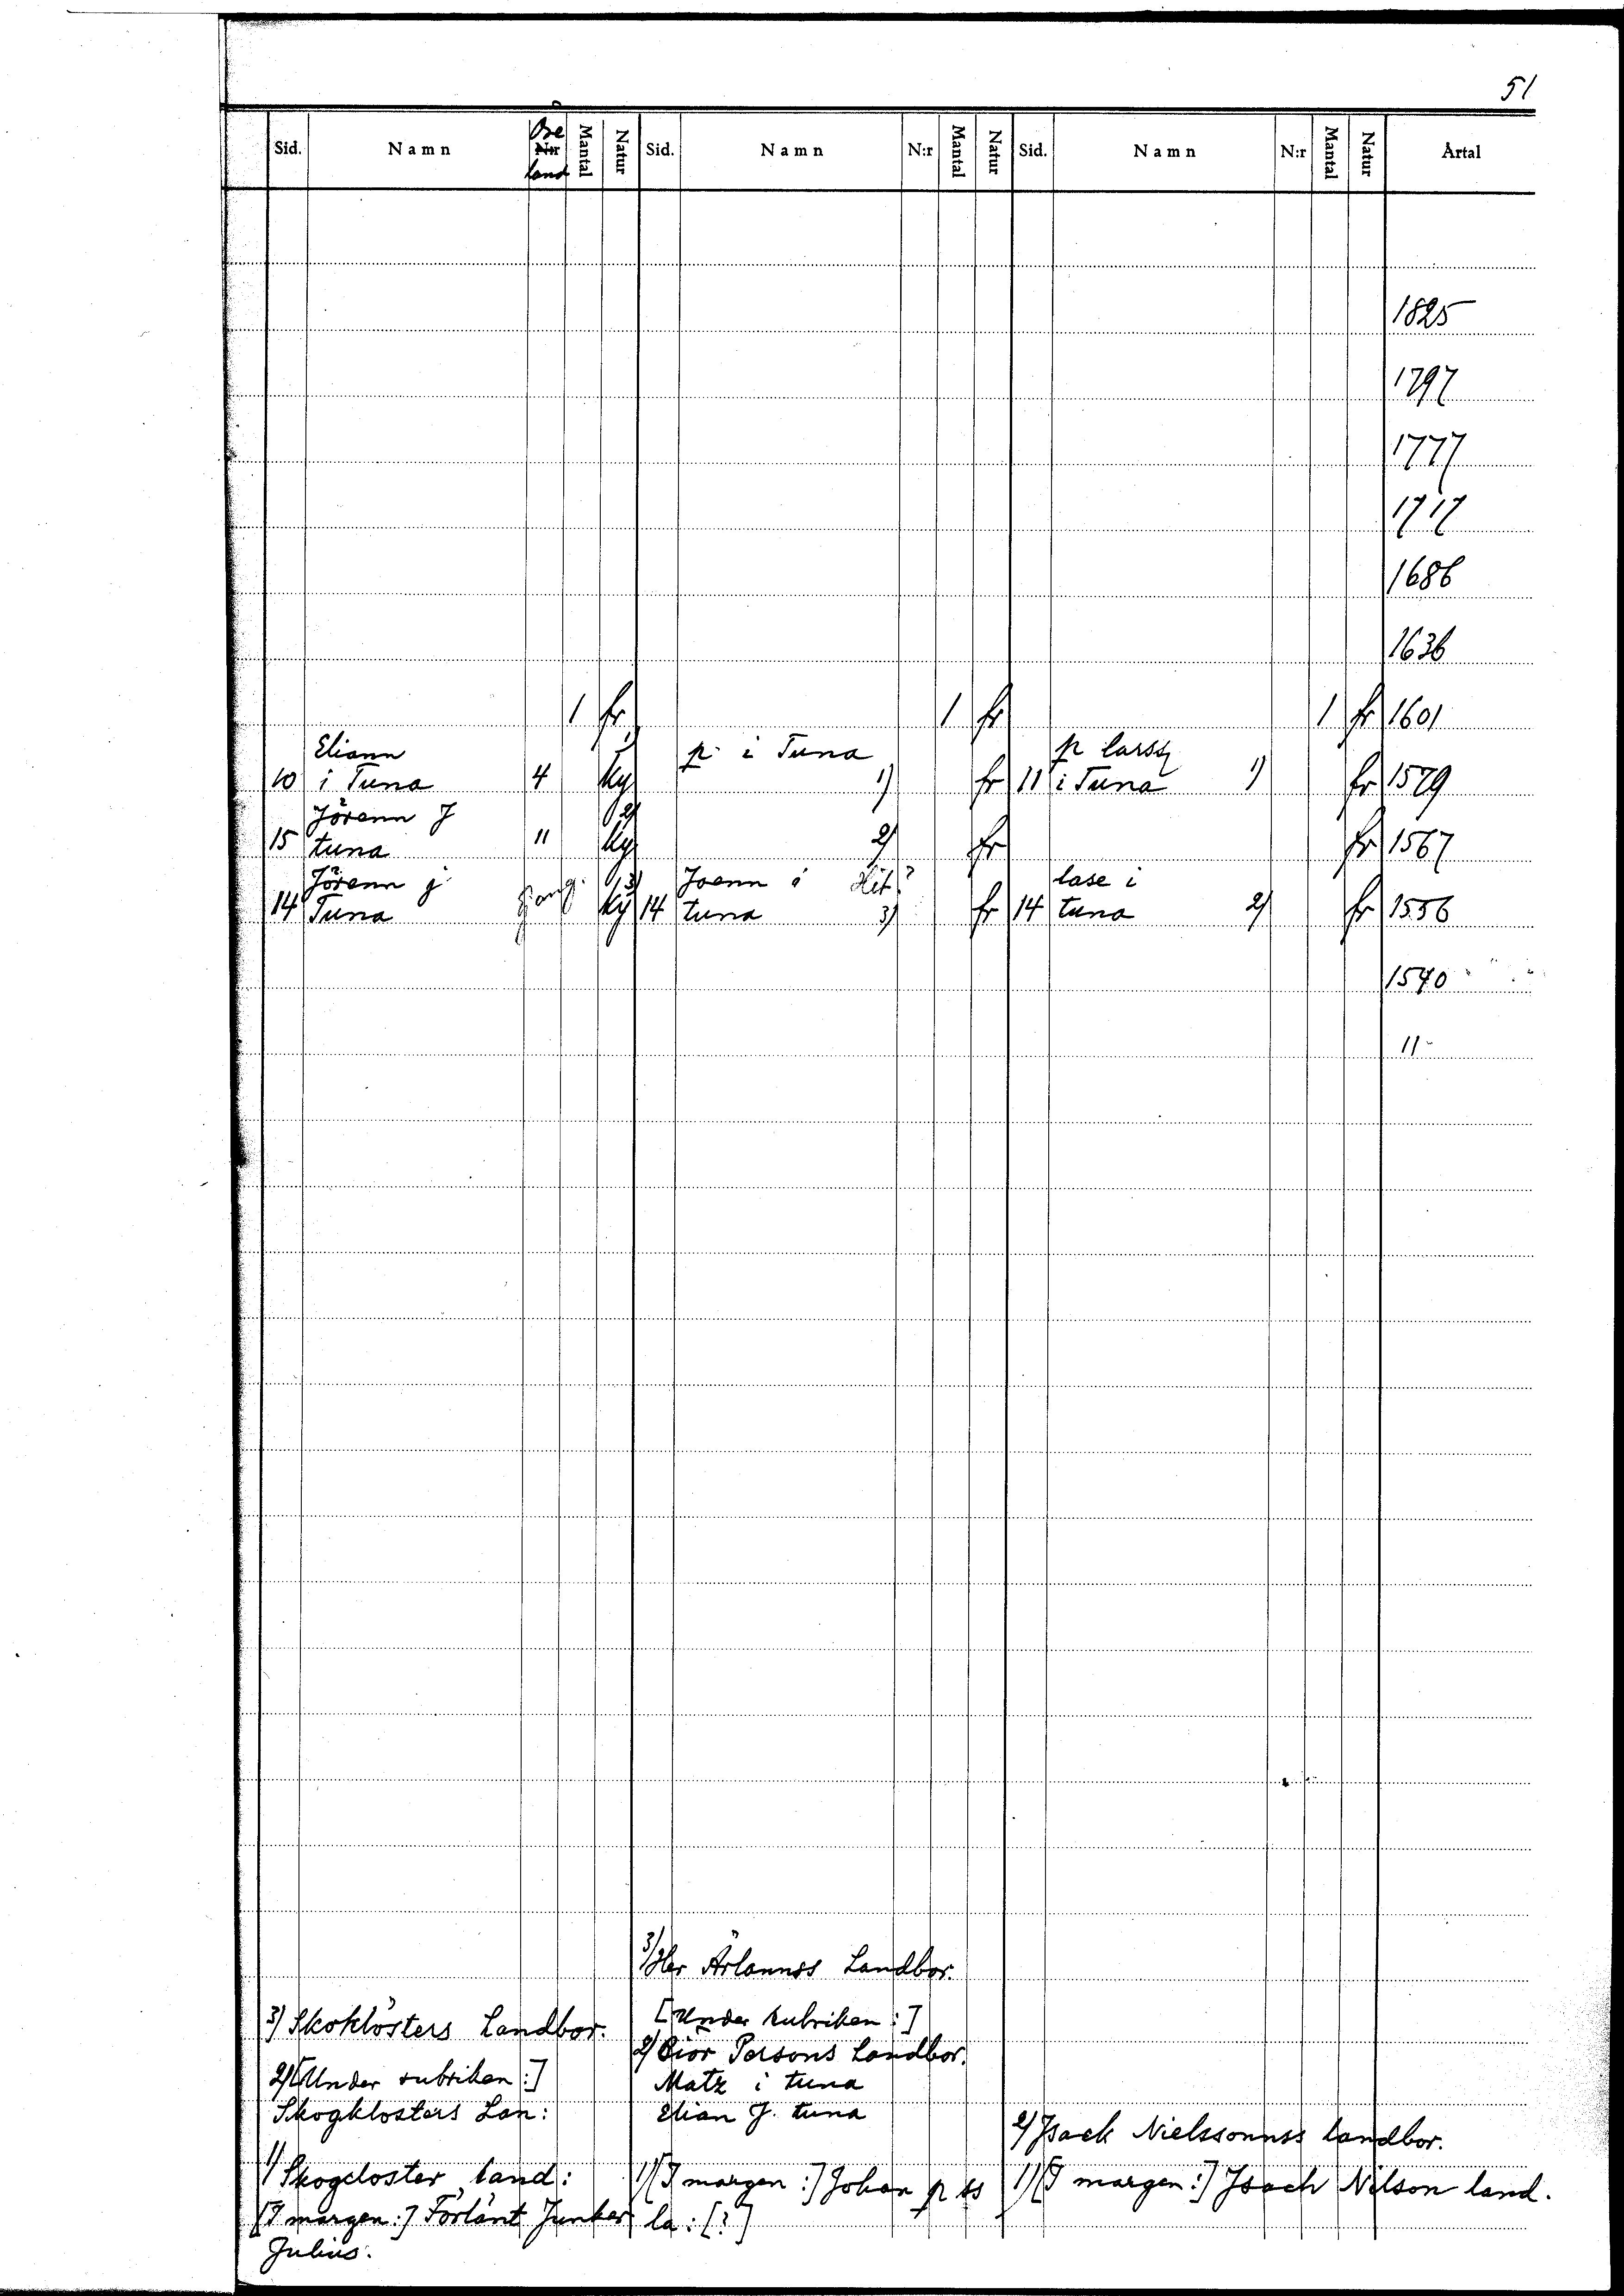 51
Sid. Namn Öre N:r land Mantal Natur Sid. Namn N:r Mantal Natur Sid. Namn N:r Mantal Natur Årtal
1825
1797
1777
1717
1686
1636
1 fr 1 fr 1 fr 1601
Eliann 1) p i Tuna p larss
10 i Tuna 4 ky 1) fr 11 i Tuna 1) fr 1579
Jörenn J 2)
15 tuna 11 ky 2) fr fr 1567
Jörenn j 3) Joenn i Hit? lase i
14 Tuna ky 14 tuna 3) fr 14 tuna 2) fr 1556
1540
11
3) Her Ärlannss Landbor.
3) Skoklösters Landbor. [Under rubriken:]
2) Biör Persons Landbor.
2) [Under rubriken:] Matz i tuna
Skogklosters Lan: Elian J. tuna
2) Jsack Nielssonnss landbor.
1) Skogcloster land: 1) [I margen:] Johan p ss 1) [I margen:] Jsach Nilson land.
[I margen:] Förlänt Junker la: [?]
Julius.